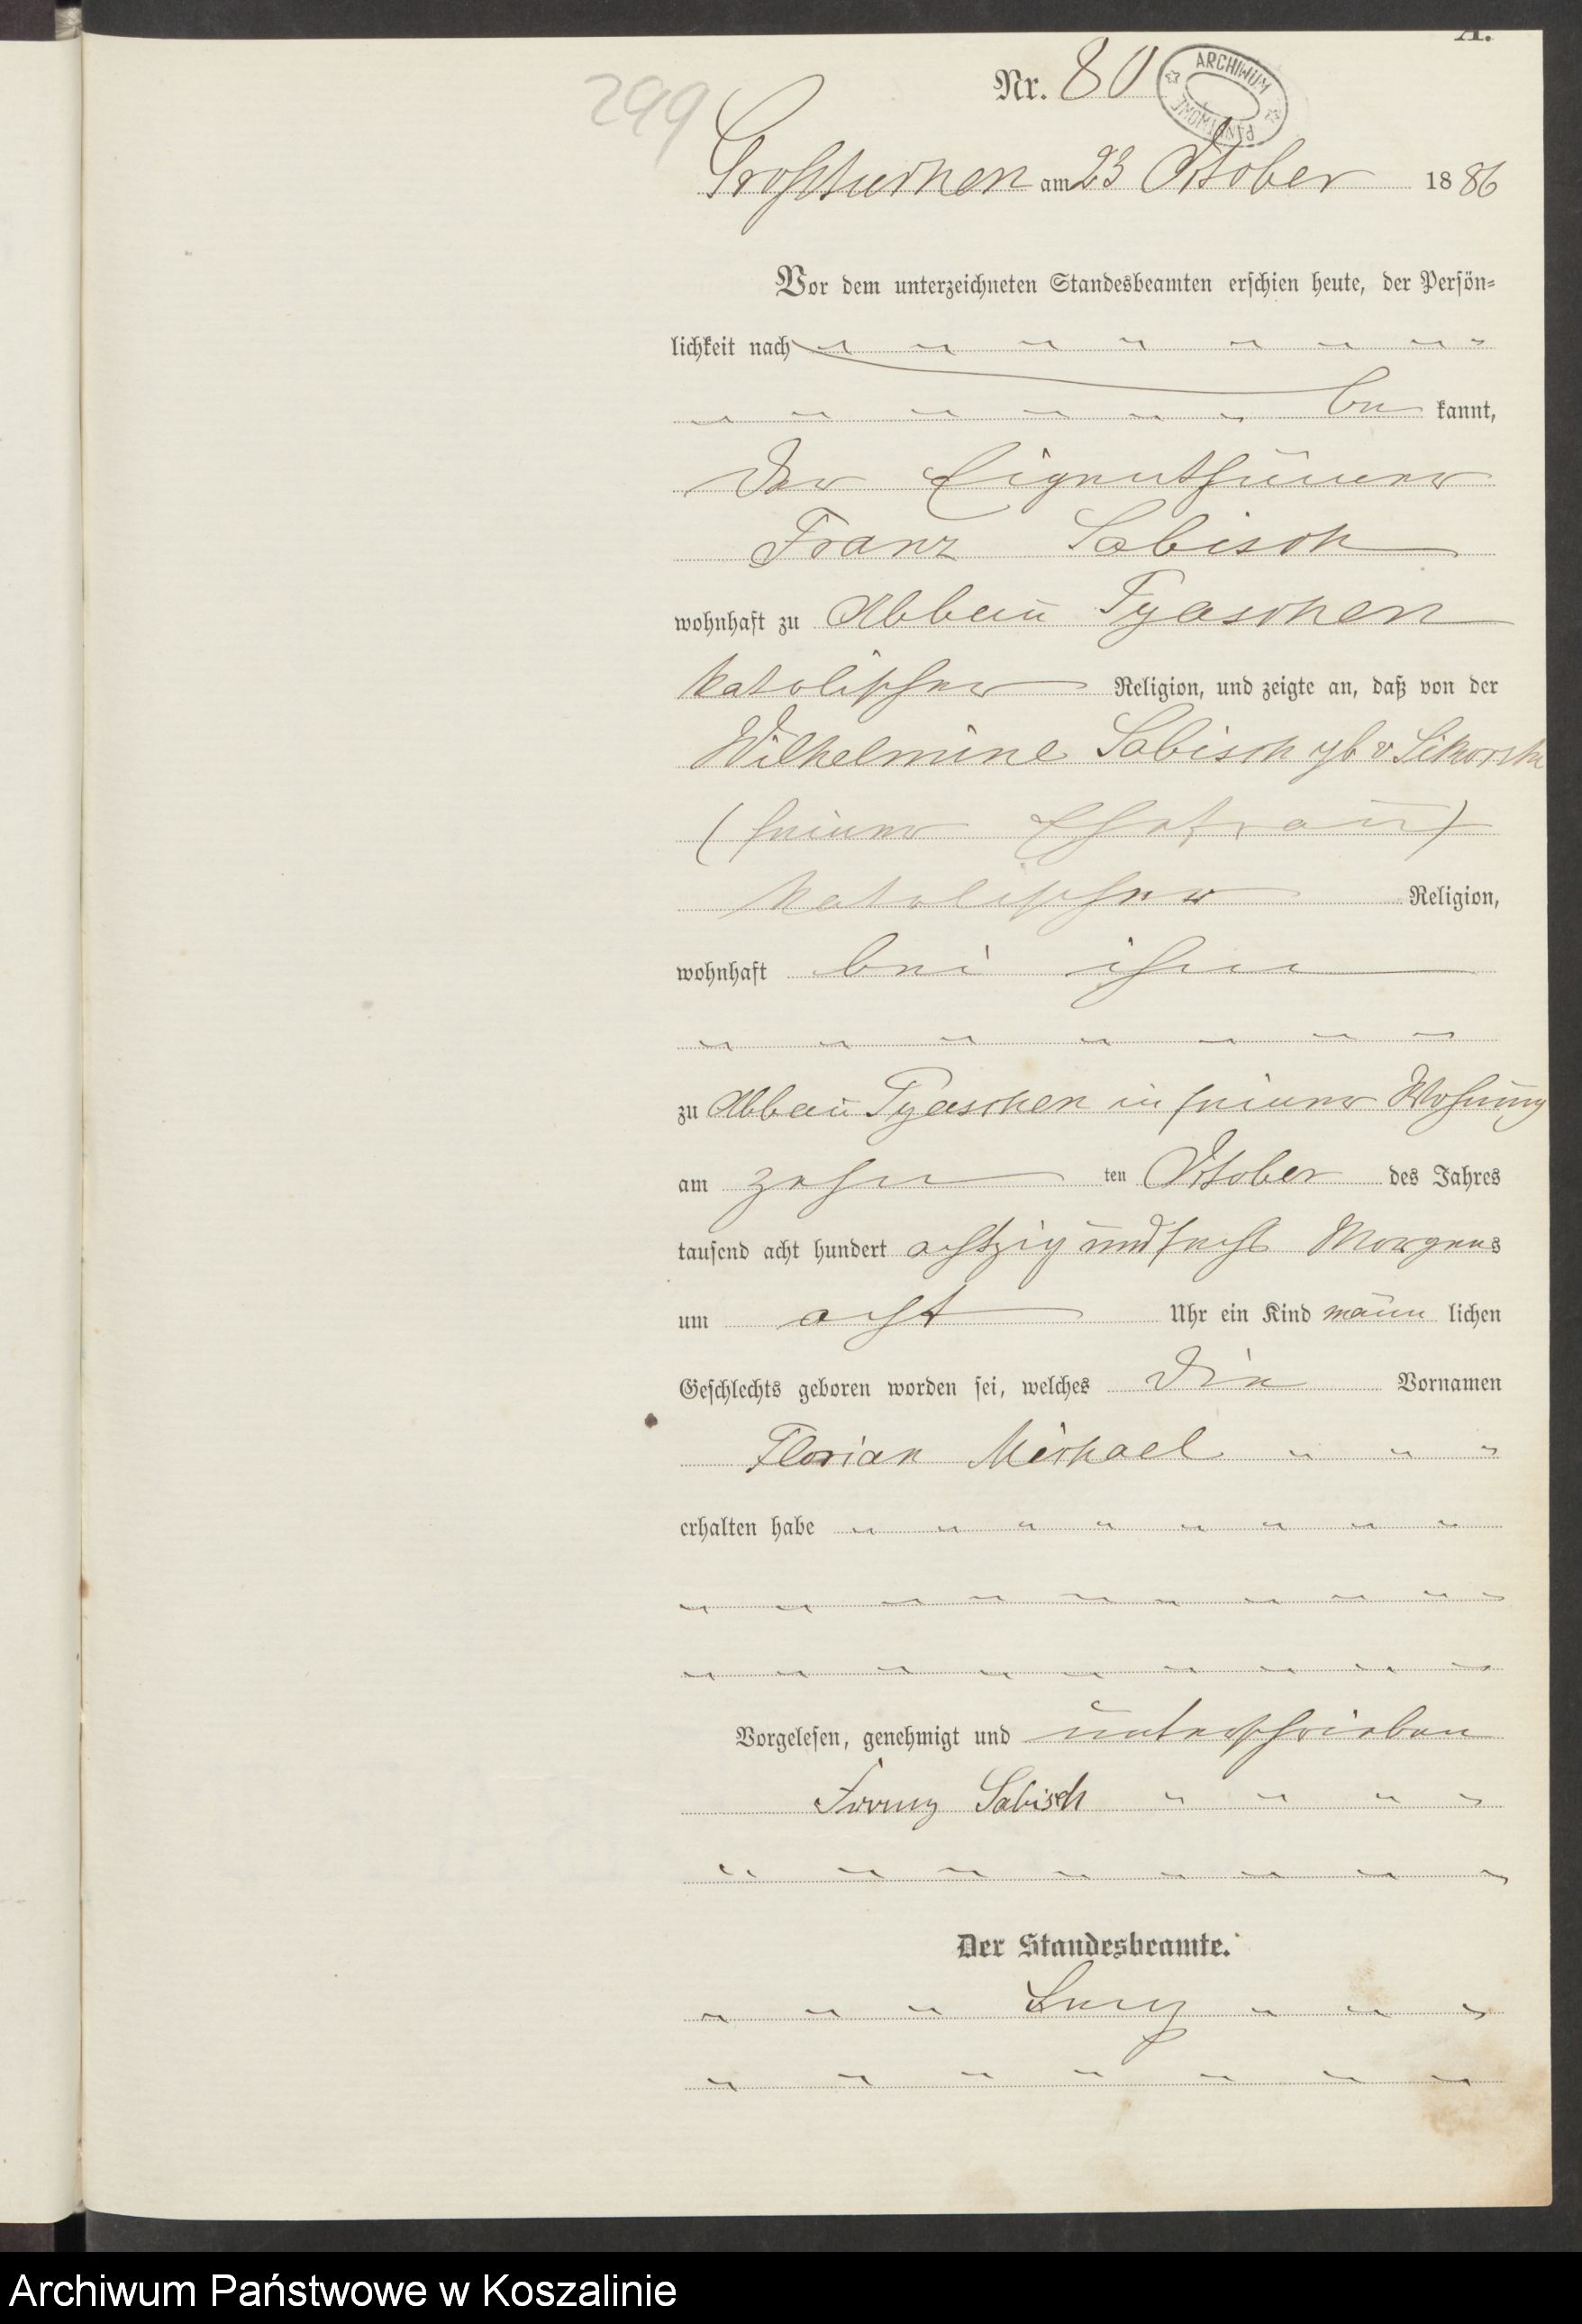 A.
299
Nr. 80
ARCHIWUM PAŃSTWOWE
Großtuchen am 23 October 1886
Vor dem unterzeichneten Standesbeamten erschien heute, der Persön-
lichkeit nach
be kannt,
der Eigenthümer
Franz Sabisch
wohnhaft zu Abbau Pyaschen
katolischer Religion, und zeigte an, daß von der
Wilhelmine Sabisch geb v. Sikorska
(seiner Ehefrau)
katolischer Religion,
wohnhaft bei ihm
zu Abbau Pyaschen in seiner Wohnung
am zehn ten October des Jahres
tausend acht hundert achtzig und sechs Morgens
um acht Uhr ein Kind männ lichen
Geschlechts geboren worden sei, welches die Vornamen
Florian Michael
erhalten habe
Vorgelesen, genehmigt und unterschrieben
Franz Sabisch
Der Standesbeamte.
Archiwum Państwowe w Koszalinie